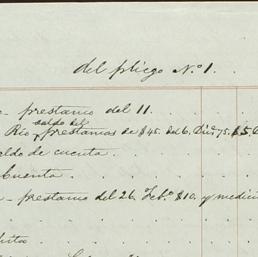 del pliego Nº 1.
prestamo del 11.
saldo del
Rio, prestamos de $45. del 6. Dic. 75. $5.
saldo de cuenta.
Cuenta.
- prestamo del 26 Febº $10. y medici